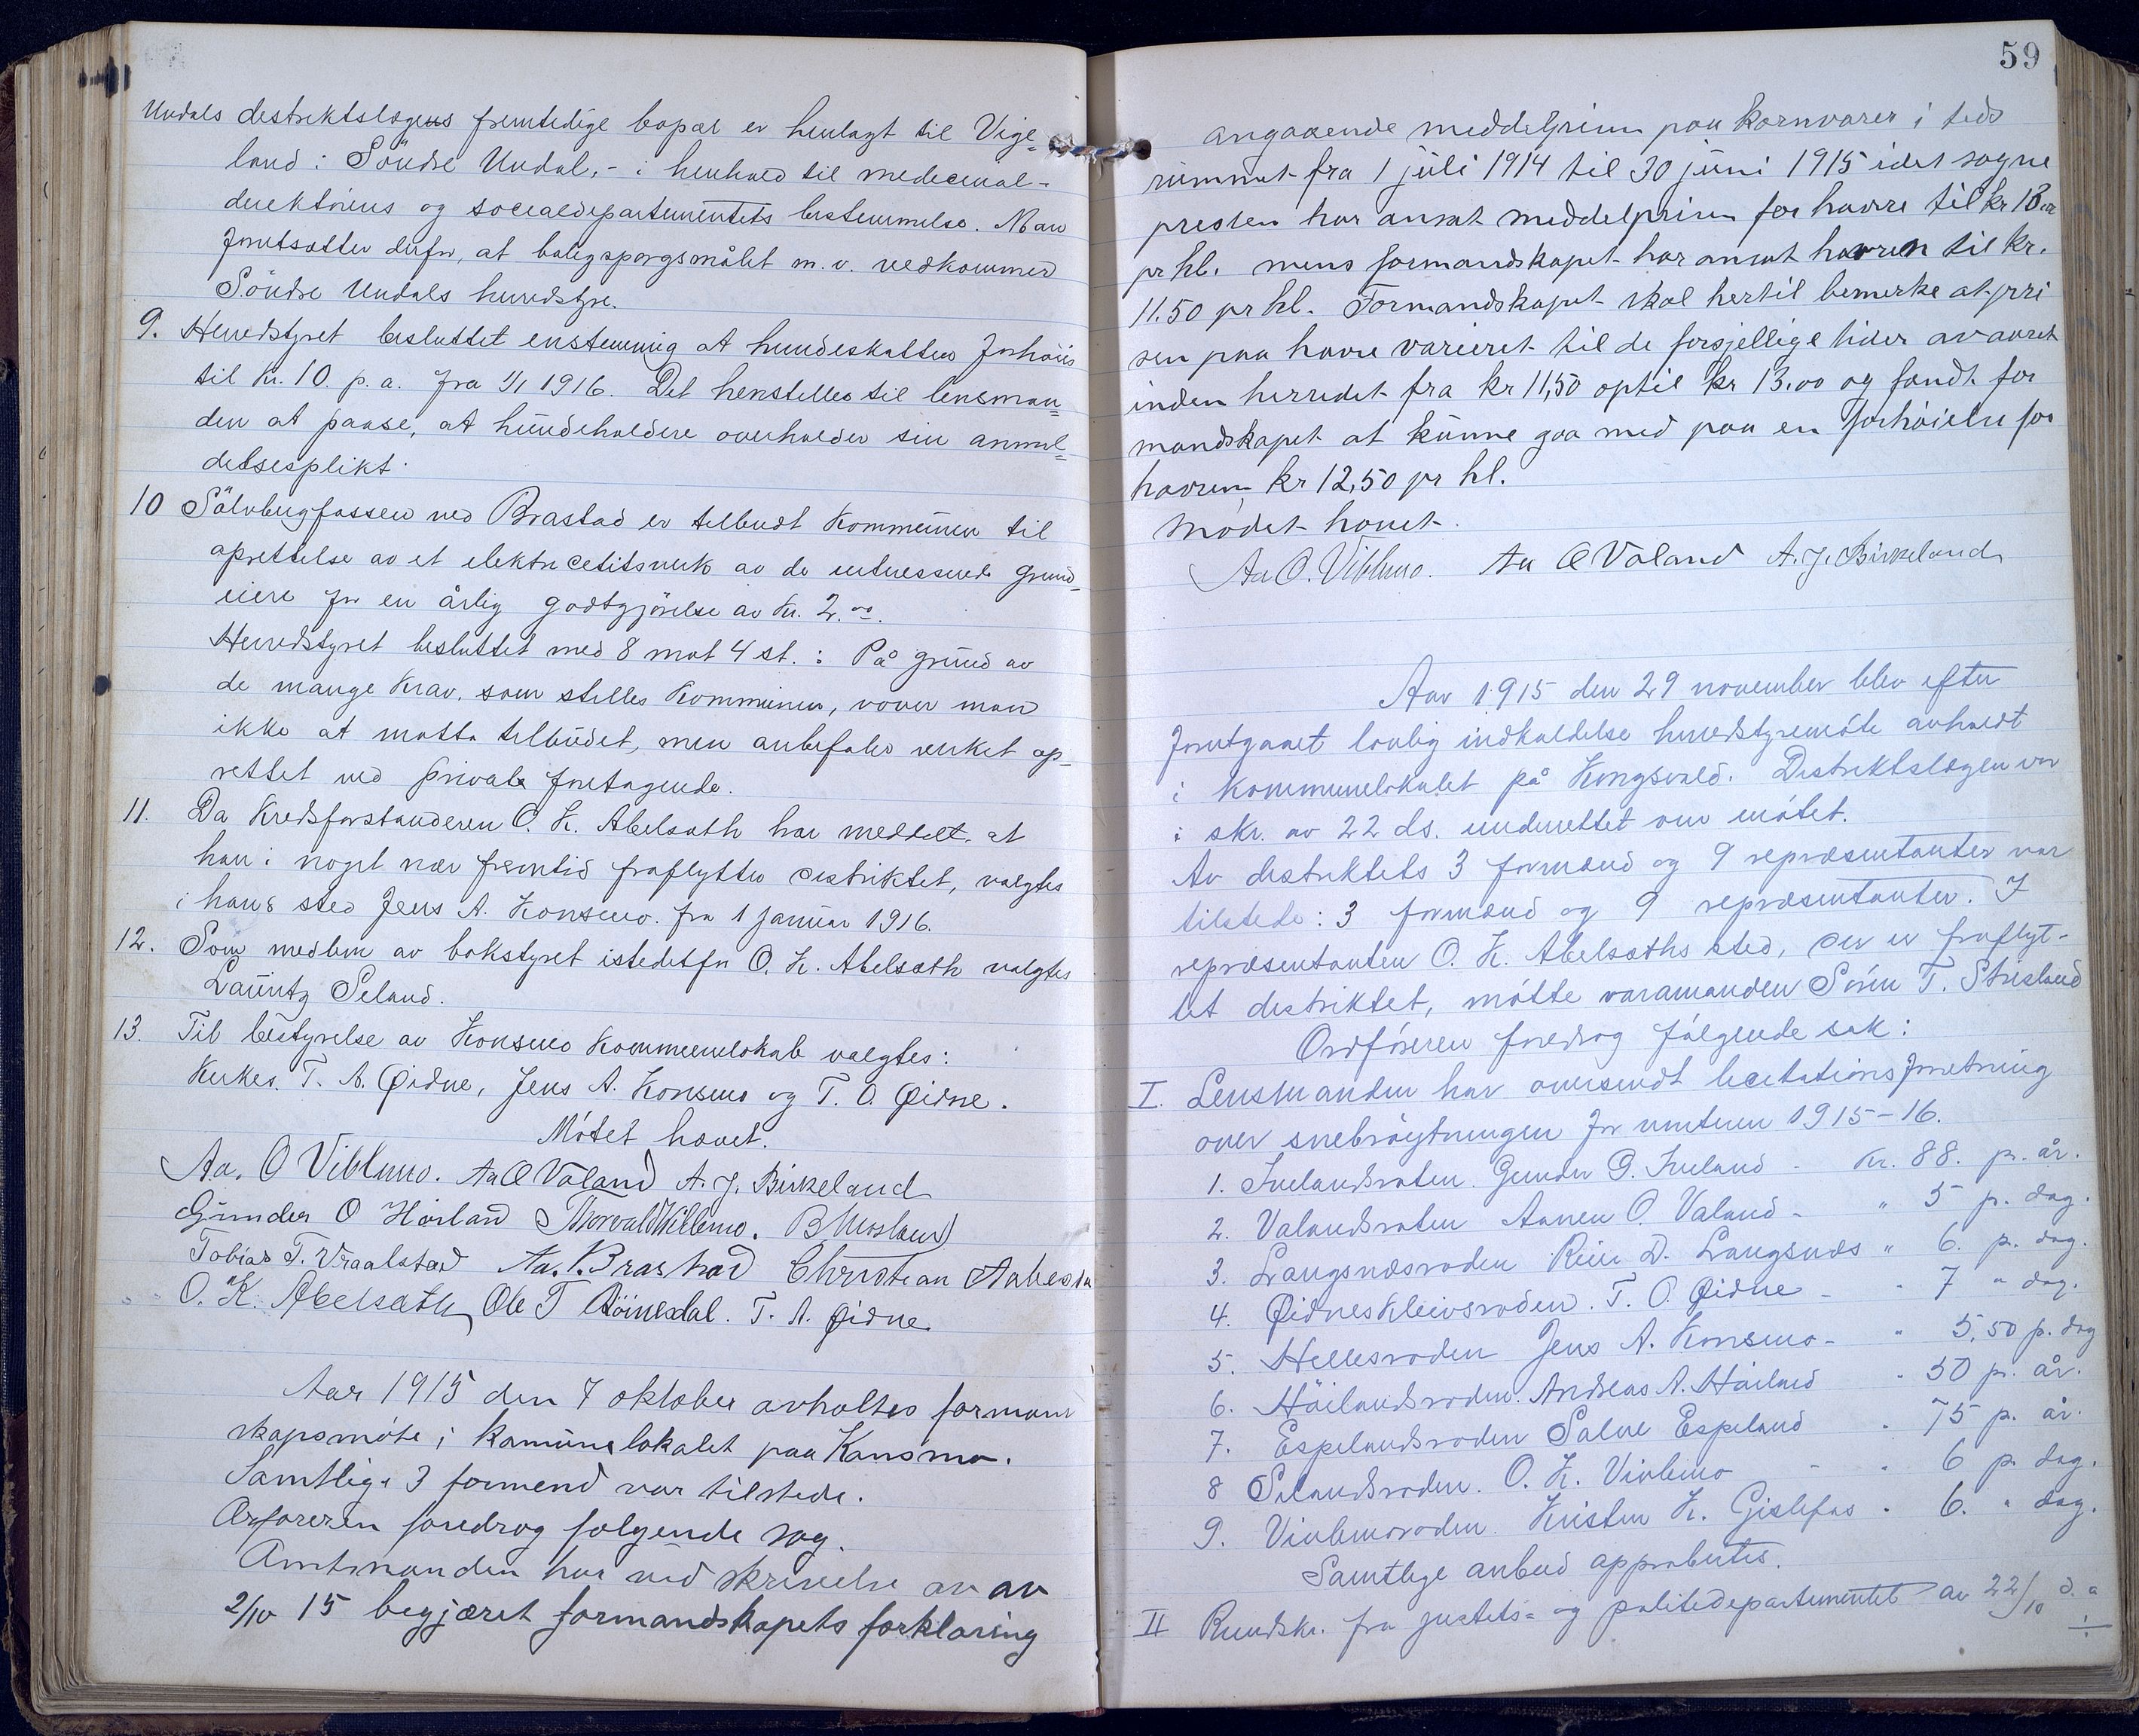 Undals destriktslægens fremtidige bopæl er henlagt til Vige=
land i Söndre Undal, - i henhold til medecinal-
direktörens og socialdepartementets bestemmelse. Man
forutsætter derfor, at boligspörgsmålet m.v. vedkommer
Söndre Undals herredstyre.
9. Herredstyret besluttet enstemmig at hundeskatten forhöies
til Kr. 10. p.a. fra 1/1 1916. Det henstilles til lensman=
den at paase, at hundeholdere overholder sin anmel=
delsesplikt.
10 Sölvbergfossen ved Brastad er tilbudt Kommunen til
oprettelse av et elektricetitsverk av de interessede grund=
eiere for en årlig godtgjörelse av Kr. 2.00.
Herredstyret besluttet med 8 mot 4 st.: På grund av
de mange Krav, som stilles Kommunen, vover man
ikke at motta tilbudet, men anbefales verket op=
rettet ved privat foretagende.
11. Da Kredsforstanderen O. K. Abelsæth har meddelt at
han i noget nær fremtid fraflytter distriktet, valgtes
i hans sted Jens A. Konsmo. fra 1 januar 1916.
12. Som medlem av bokstyret istedetfor O. K. Abelsæth valgtes
Lauritz Seland.
13. Til bestyrelse av Konsmo Kommunelokale valgtes:
T. A. Øidne, Jens A. Konsmo og T. O. Øidne.
Mötet hævet.
Aa. O Viblemo. Aa O Våland A. J. Birkeland
Gunder O Hörland Thorvald Viblemo.
Tobias T. Vraalstad Aa. Brastad Christian
O. K. Abelsæth, Ole T Röinesdal. T. A. Øidne
Aar 1915 den 7 oktober avholtes formand
skapsmöte i Kamunelokalet paa Konsmo.
Samtlige 3 formend var tilstede.
Orforeren foredrog folgende sag.
Amtmanden har ved skrivelse av av
2/10 15 begjæret formandskapets forklaring
59
angaaende meddelprisen paa kornvarer i tids
rummet fra 1 juli 1914 til 30 juni 1915 idet sogne
presten har ansat meddelprisen for havre til kr 13.00
pr hl. mens formandskapet har ansat havren til kr.
11.50 pr hl. Formandskapet skal hertil bemerke at pri
sen paa havre varieret til de forsjellige tider av aaret
inden herredet fra kr 11,50 optil kr 13.00 og fandt for
mandskapet at kunne gaa med paa en forhöielse for
havren kr 12,50 pr hl.
Mödet hævet.
Aa O. Viblemo. Aa O Våland A. J. Birkeland
Aar 1915 den 29 november blev efter
forutgaaet lovlig indkaldelse herredstyremöte avholdt
i kommunelokalet på Kongsvold. Distriktslægen var
i skr. av 22 ds. underrettet om mötet.
Av destriktets 3 formænd og 9 repræsentanter var
tilstede: 3 formænd og 9 repræsentanter. I
repræsentanten O. K. Abelsæths sted, der er fraflyt-
tet destriktet, mötte varamanden Sören T. Strisland
Ordföreren foredrog fölgende sak:
I. Lensmanden har oversendt licitationsforretning
over snebröytningen for vinteren 1915-16.
1. Irelandsroden. Gunder G. Ireland - Kr. 88. pr. år.
2. Valandsroten Aanen O. Valand - " 5 p. dag.
3. Langsnæsroden Reier D. Langsnæs " 6. p. dag.
4. Øidneskleivsroden. T. O. Øidne - " 7 " dag.
5. Hellesroden Jens A. Konsmo - " 5,50 p. dag
6. Höilandsroden. Andreas A. Höiland " 50 pr. år.
7. Espelandsroden Salve Espeland " 75 p. år.
8 Selandsroden. O. K. Viblemo - " 6 p. dag.
9. Viblemoroden. Kristen K. Gislefos " 6. " dag.
Samtlige anbud approbertes.
II Rundskr. fra justets- og politidepartementet av 22/10 d. a